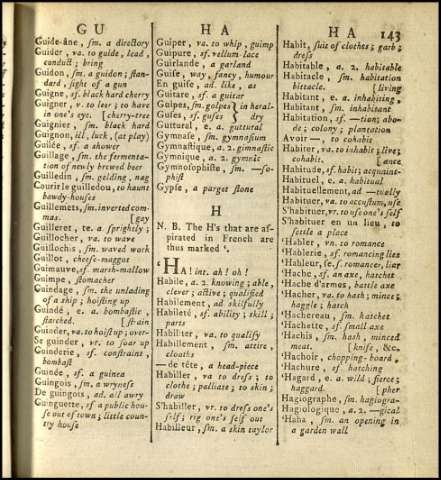 GU
HA
HA
143
Guide-âne, sm. a directory
Guider, va. to guide, lead,
conduct; bring
Guidon, sm. a guidon; stan-
dard, sight of a gun
Guigne, sf. black hard cherry
Guigner, v. to leer; to have
in one's eye. [cherry-tree
Guignier, sm. black hard
Guignon, ill, luck, (at play)
Guilée, sf. a shower
Guillage, sm. the fermenta-
tion of newly brewed beer
Guilledin, sm. gelding, nag
Courir le guilledou, to haunt
bawdy-houses
Guillemets, sm. inverted com-
mas. [gay
Guilleret, te. a sprightly;
Guillocher, va. to wave
Guillochis, sm. waved work
Guillot, cheese-maggot
Guimauve, sf. marsh-mallow
Guimpe, stomacher
Guindage, sm. the unlading
of a ship; hoisting up
Guindé, e. a. bombastic,
starched. [strain
Guinder, va. to hoist up; over-
Se guinder, vr. to soar up
Guinderie, sf. constraint,
bombast
Guinée, sf. a guinea
Guingois, sm. a wryness
De guingois, ad. all awry
Guinguette, sf. a public hou-
se out of town; little coun-
try house
Guiper, va. to whip, gimp
Guipure, sf. vellum-lace
Guirlande, a garland
Guise, way, fancy, humour
En guise, ad. like, as
Guitare, sf. a guitar
Gulpes, sm. golpes } in haral-
Guses, sf. guses } dry
Guttural, e. a. guttural
Gymnase, sm. gymnasium
Gymnastique, a. 2. gimnastic
Gymnique, a. 2. gymnic
Gymnosophiste, sm. —so-
phist
Gypse, a parget stone
H
N. B. The H's that are as-
pirated in French are
thus marked '.
'HA! int. ah! oh!
Habile, a. 2. knowing; able,
clever; active; qualified
Habilement, ad skilfully
Habileté, sf. ability; skill;
parts
Habiliter, va. to qualify
Habillement, sm. attire,
cloaths
—de tête, a head-piece
Habiller, va to dress; to
clothe; palliate; to skin;
draw
S'habiller, vr. to dress one's
self; rig one's self out
Habilleur, sm. a skin taylor
Habit, suit of clothes; garb;
dress
Habitable, a. 2. habitable
Habitacle, sm. habitation
bittacle. [living
Habitant, e. a. inhabiting,
Habitant, sm. inhabitant
Habitation, sf. —tion; abo-
de; colony; plantation
Avoir —, to cohabit
Habiter, va. to inhabit; live;
cohabit. [ance
Habitude, sf. habit; acquaint-
Habituel, e. a. habitual
Habituellement, ad —tually
Habituer, va. to accustom, use
S'habituer, vr. to use one's self
S'habituer en un lieu, to
settle a place
'Habler, vn. to romance
'Hablerie, sf. romancing lies
'Hableur, se. f. romancer, lier
'Hache, sf. an axe, hatchet
'Hache d'armes, battle axe
'Hacher, va. to hash; mince;
haggle; hatch
'Hachereau, sm. hatchet
'Hachette, sf. small axe
'Hachis, sm. hash, minced
meat. [knife, &c.
'Hachoir, chopping-board,
'Hachure, sf. hatching
'Hagard, e. a. wild; fierce;
haggard. [pher
Hagiographe, sm. hagiogra-
Hagiologique, a. 2. —gical
'Haha, sm. an opening in
a garden wall